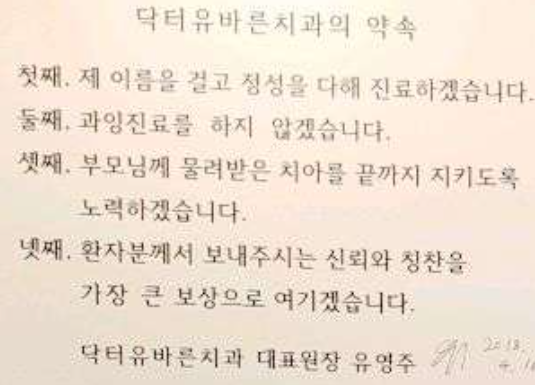 닥터유바른치과의 약속
첫째. 제 이름을 걸고 정성을 다해 진료하겠습니다.
둘째. 과잉진료를 하지 않겠습니다.
셋째. 부모님께 물려받은 치아를 끝까지 지키도록
노력하겠습니다.
넷째. 환자분께서 보내주시는 신뢰와 칭찬을
가장 큰 보상으로 여기겠습니다.
닥터유바른치과 대표원장 유영주